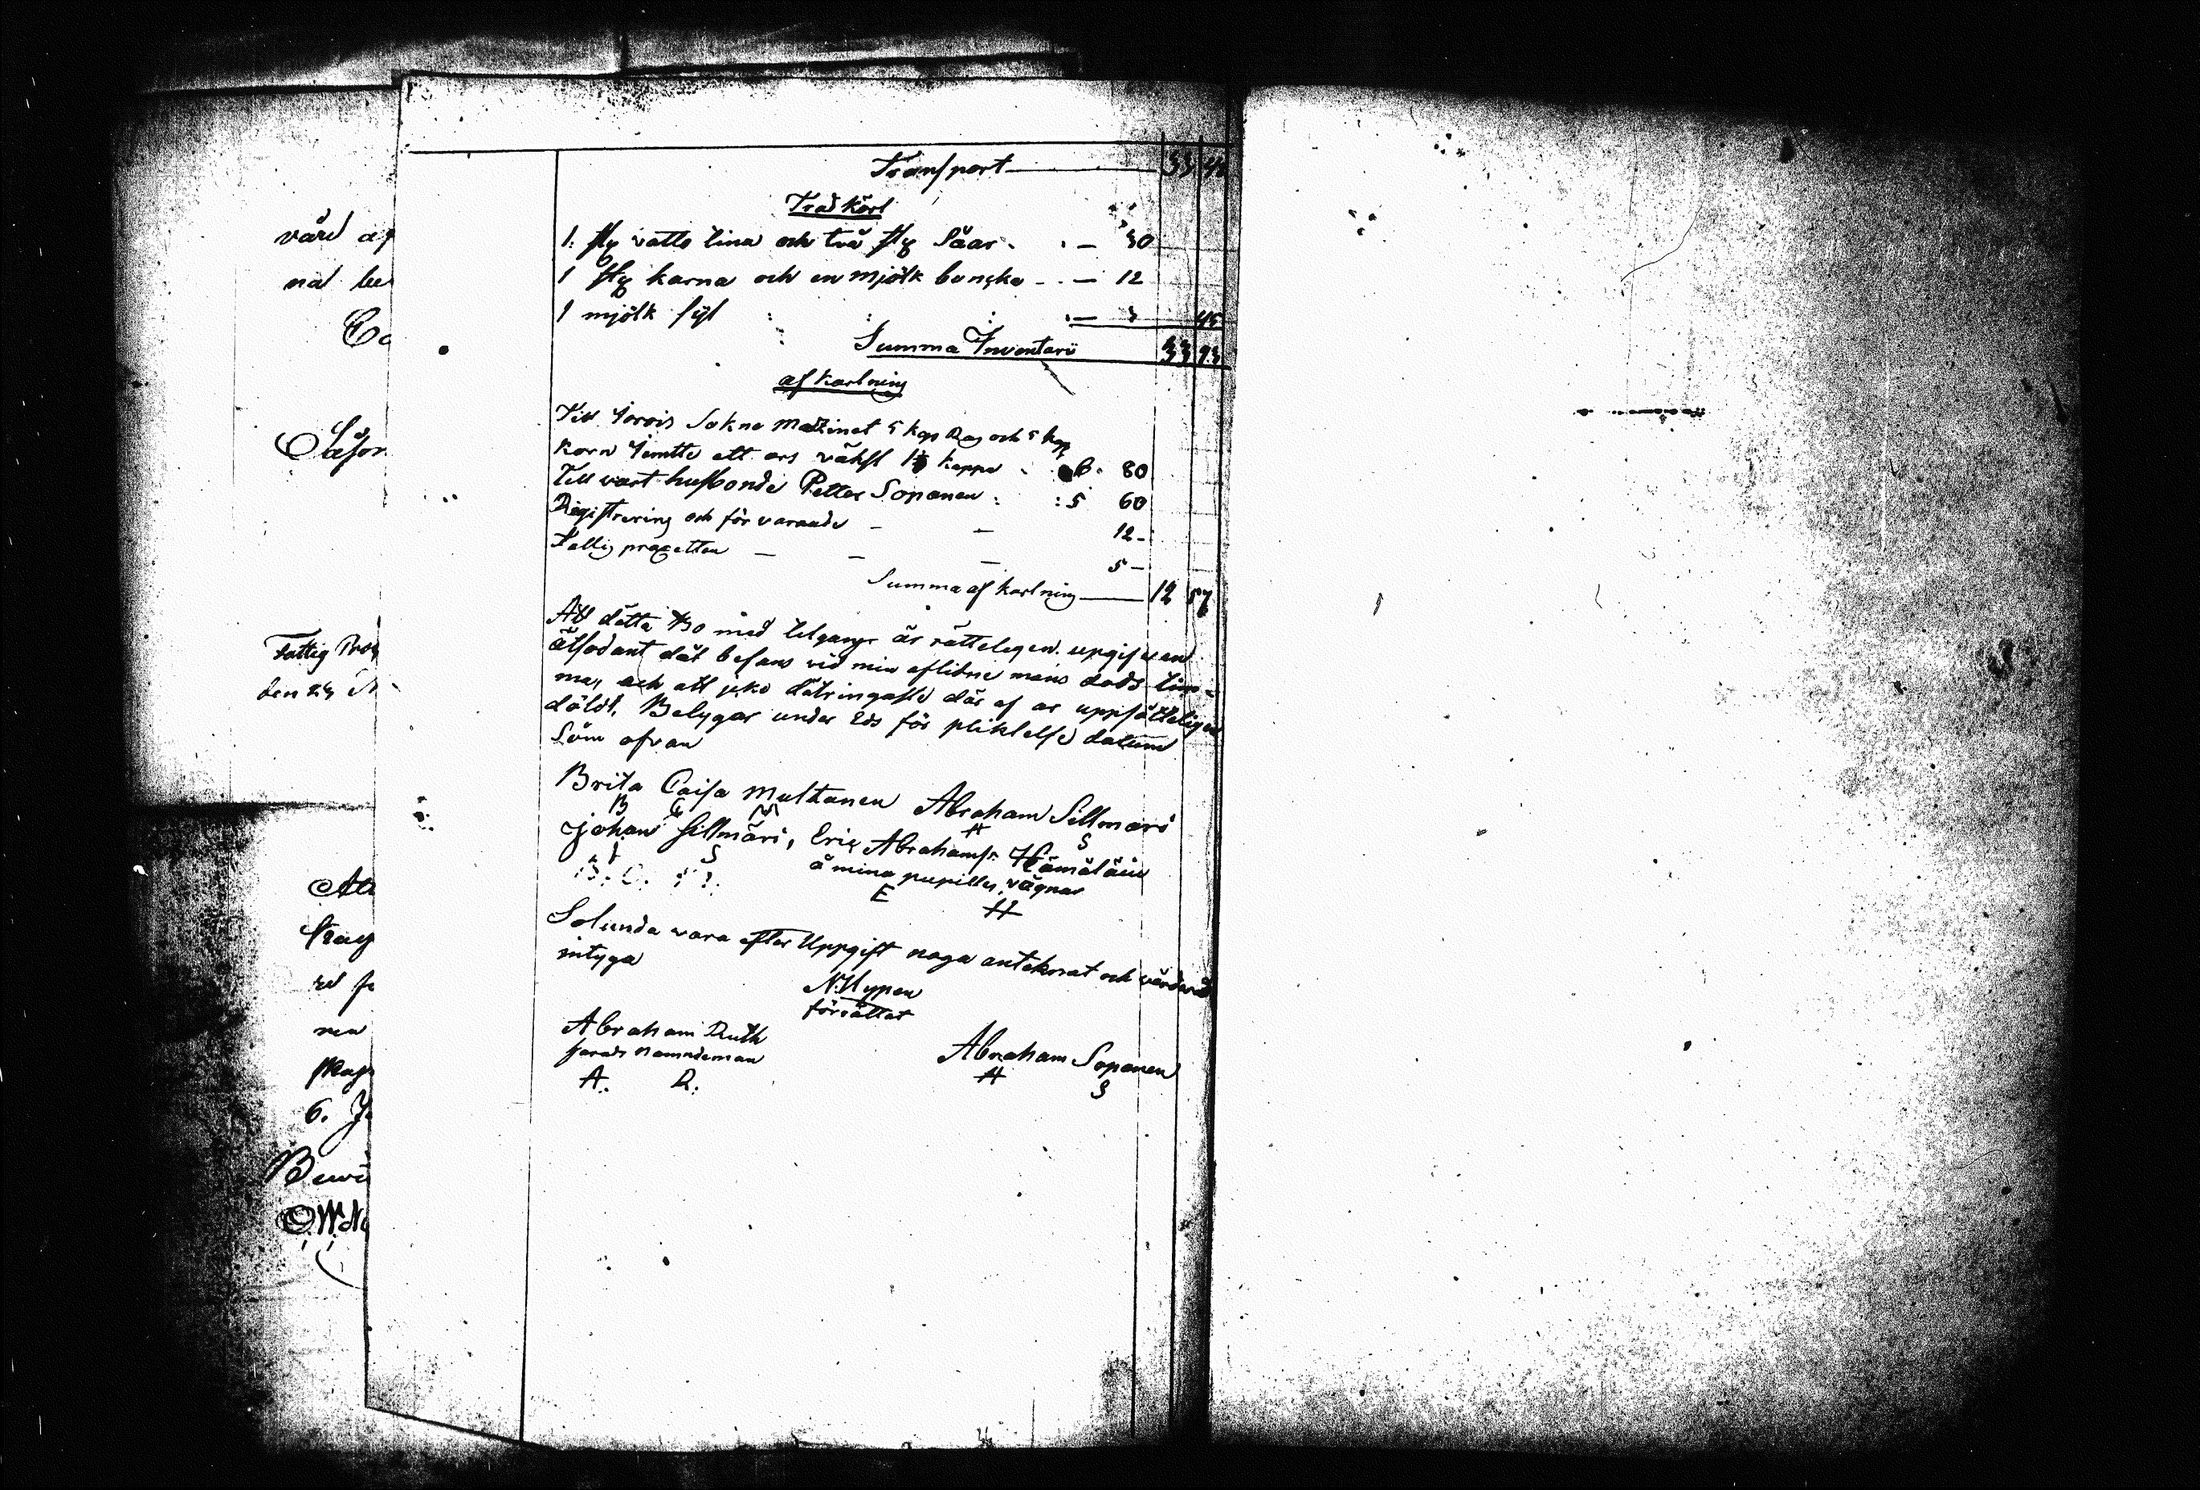 Transport 33 48
Träd Kärl
1: stg vatto tina och två stg Såar. — 30
1 stg karna och en mjölk buncka — 12
1 mjölk syl — 3 45
Summa Inventarii 33 93
af Kortning
Till Jorois Sokne Mackinet 5 kap Rag och 5 kap
Korn Jemtte ett ars växst kappe 6. 80
Till vart husbonde Petter Soponen : 5 60
Registrering och för varande — — 12 —
Fattig procetten — — — 5 —
Summa af kortning 12 57
Att dätta Bo med tilgangr är rättelegen upgifven
ätsodant dät befans vid min aflidne mans dods tim=
ma, och att icke dätringaste där af ar uppsåtteligen
döldt, Belygar under Eds för pliktelse datum
Som ofvan
Brita Caisa Multanen Abraham Sillmari
B C M A S
Johan Sillmäri, Eric Abrahams: Hämäläin
J S å mina pupillers vägnar
E H
Solunda vara efter Uppgift noga anteknat och värderat
intyga
N: Nypen
författat
Abraham Ruth
harads namndeman Abraham Soponen
A. R. A S
värd af
nal be
Co
Fattig Pro
den 24
6. J